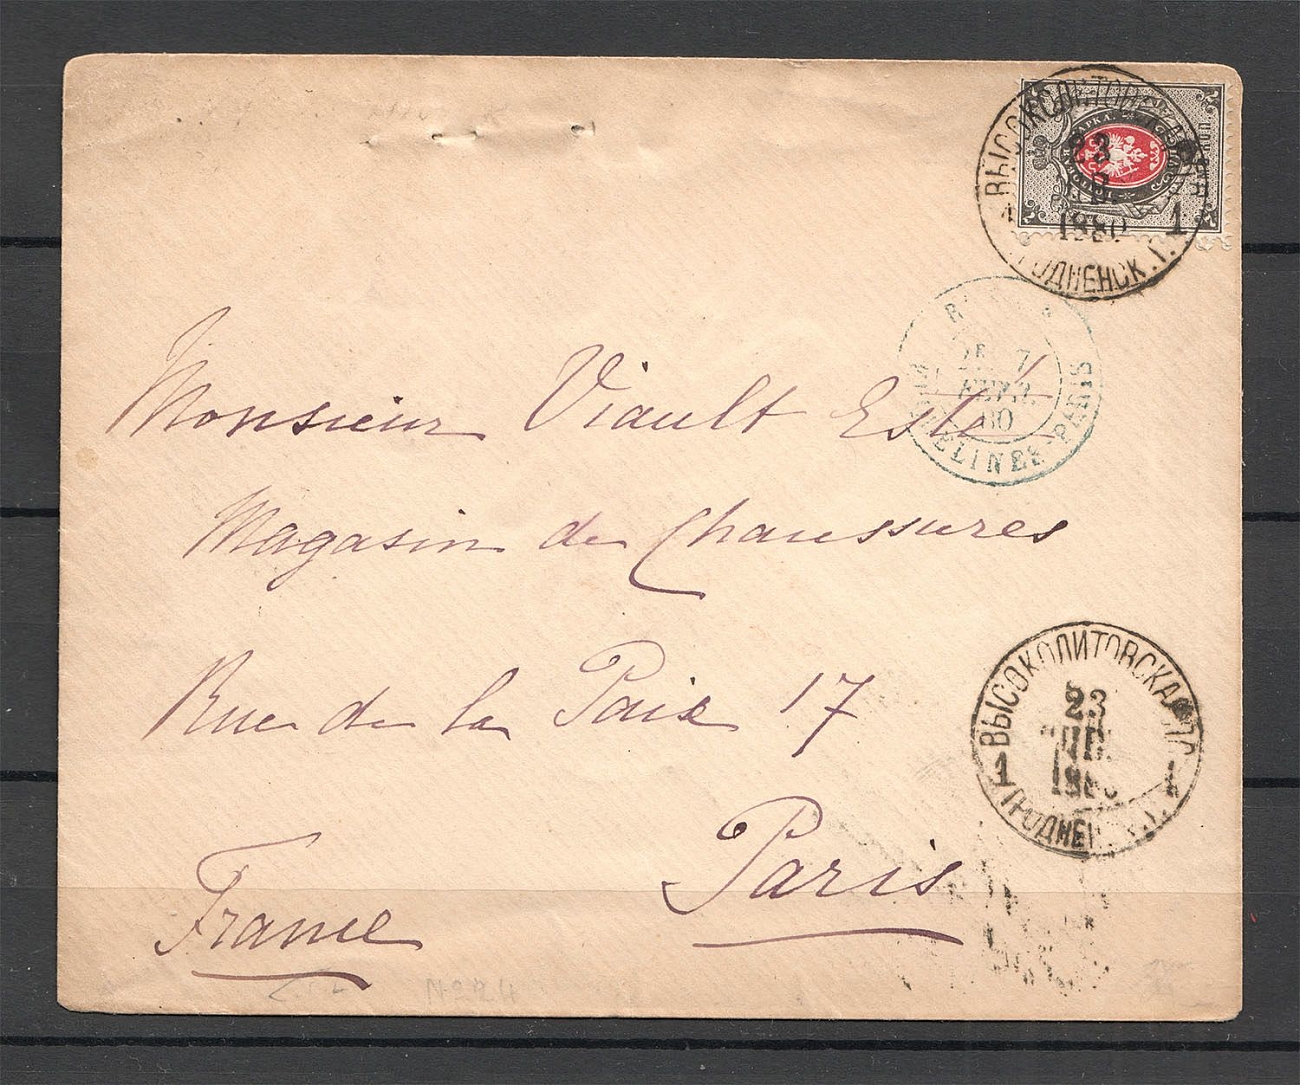 ВЫСОКОЛИТОВСКАЯ
23
1880
1
ГРОДНЕНСК. Г.
7
FEVR
80
ERQUELINES-PARIS
Monsieur Viault Esté
Magasin de Chaussures
Rue de la Paix 17
Paris
France
ВЫСОКОЛИТОВСКАЯ
23
1880
1 1
ГРОДНЕН